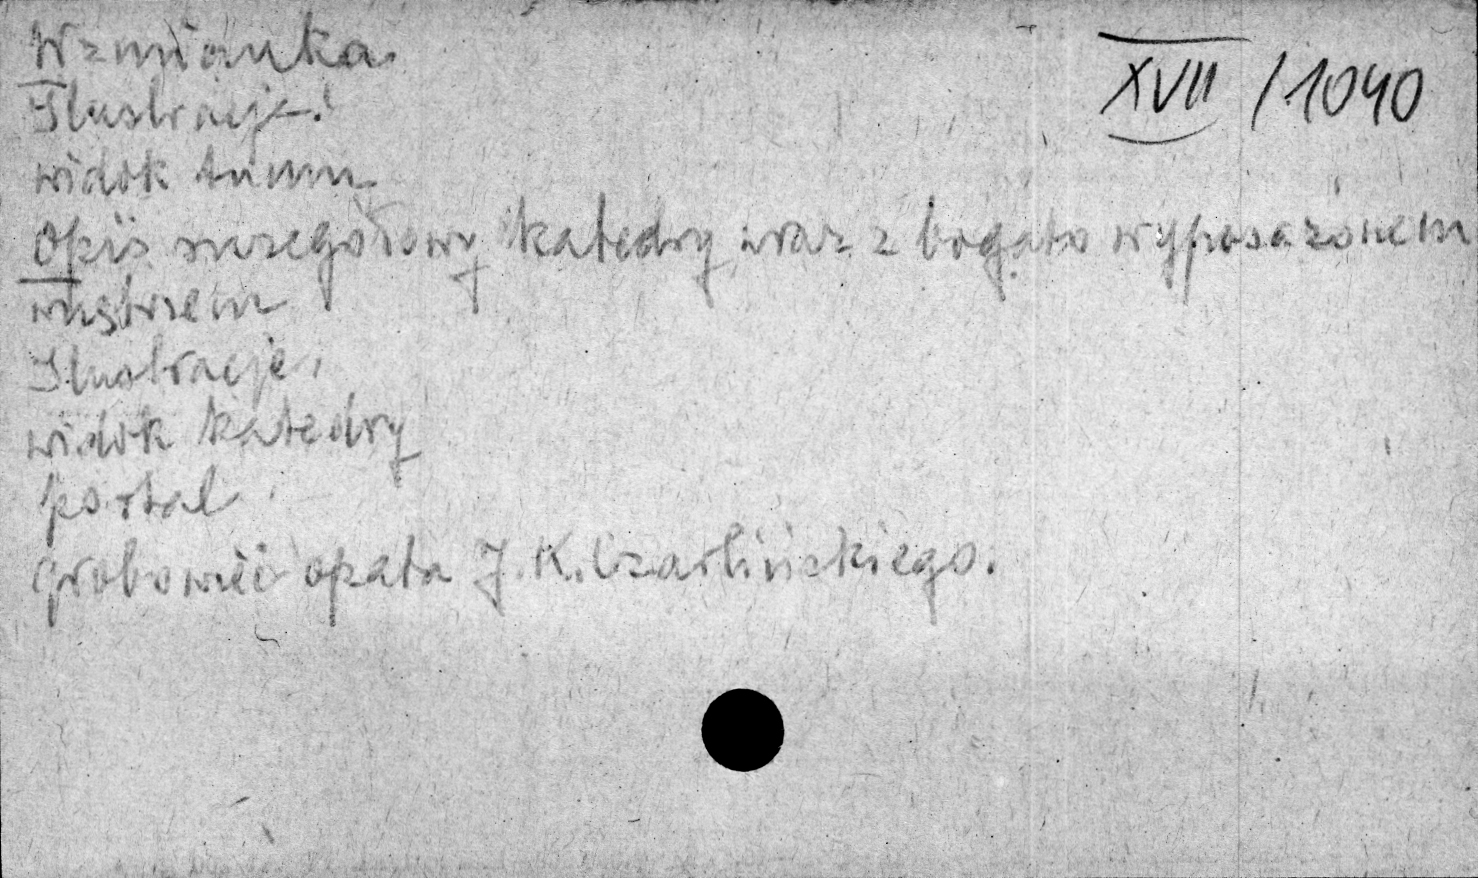 Wzmianka.
XVII / 1040
Ilustracje:
widok tumu
Opis szczegółowy katedry wraz z bogato wyposażonem
wnętrzem
Ilustracje:
widok katedry
portal
grobowiec opata J. K. Czarlińskiego.